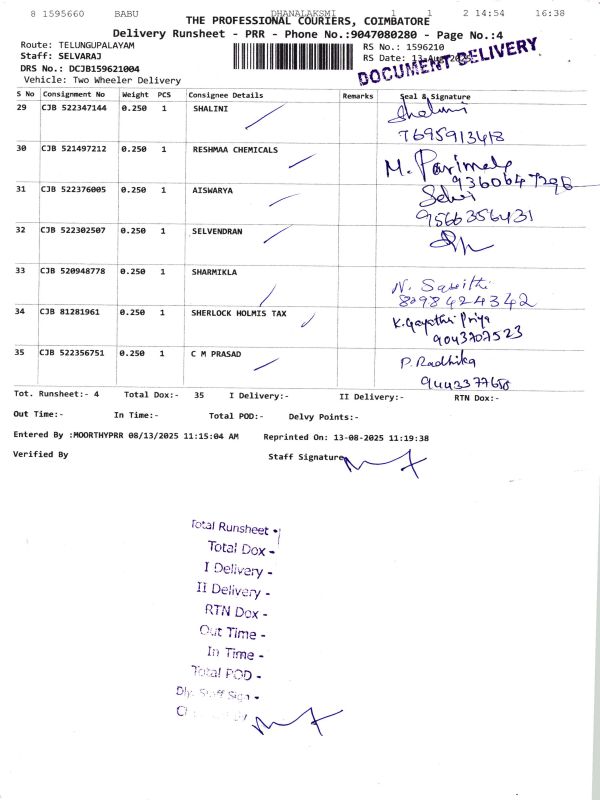 8 1595660 BABU DHANALAKSMI 1 1 2 14:54 16:38
THE PROFESSIONAL COURIERS, COIMBATORE
Delivery Runsheet - PRR - Phone No.:9047080280 - Page No.:4
Route: TELUNGUPALAYAM RS No.: 1596210
Staff: SELVARAJ RS Date: 13-Aug-2025
DOCUMENT DELIVERY
DRS No.: DCJB159621004
Vehicle: Two Wheeler Delivery
S No Consignment No Weight PCS Consignee Details Remarks Seal & Signature
29 CJB 522347144 0.250 1 SHALINI Shalini
7695913418
30 CJB 521497212 0.250 1 RESHMAA CHEMICALS M. Parimala
9360647296
31 CJB 522376005 0.250 1 AISWARYA Selvi
9566356431
32 CJB 522302507 0.250 1 SELVENDRAN
33 CJB 520948778 0.250 1 SHARMIKLA N. Savithi
8098424342
34 CJB 81281961 0.250 1 SHERLOCK HOLMIS TAX K.Gayathri Priya
9043707523
35 CJB 522356751 0.250 1 C M PRASAD P. Radhika
Tot. Runsheet:- 4 Total Dox:- 35 I Delivery:- II Delivery:- RTN Dox:-
Out Time:- In Time:- Total POD:- Delvy Points:-
Entered By :MOORTHYPRR 08/13/2025 11:15:04 AM Reprinted On: 13-08-2025 11:19:38
Verified By Staff Signature
Total Runsheet -
Total Dox -
I Delivery -
II Delivery -
RTN Dox -
Out Time -
In Time -
Total POD -
Dly. Staff Sign -